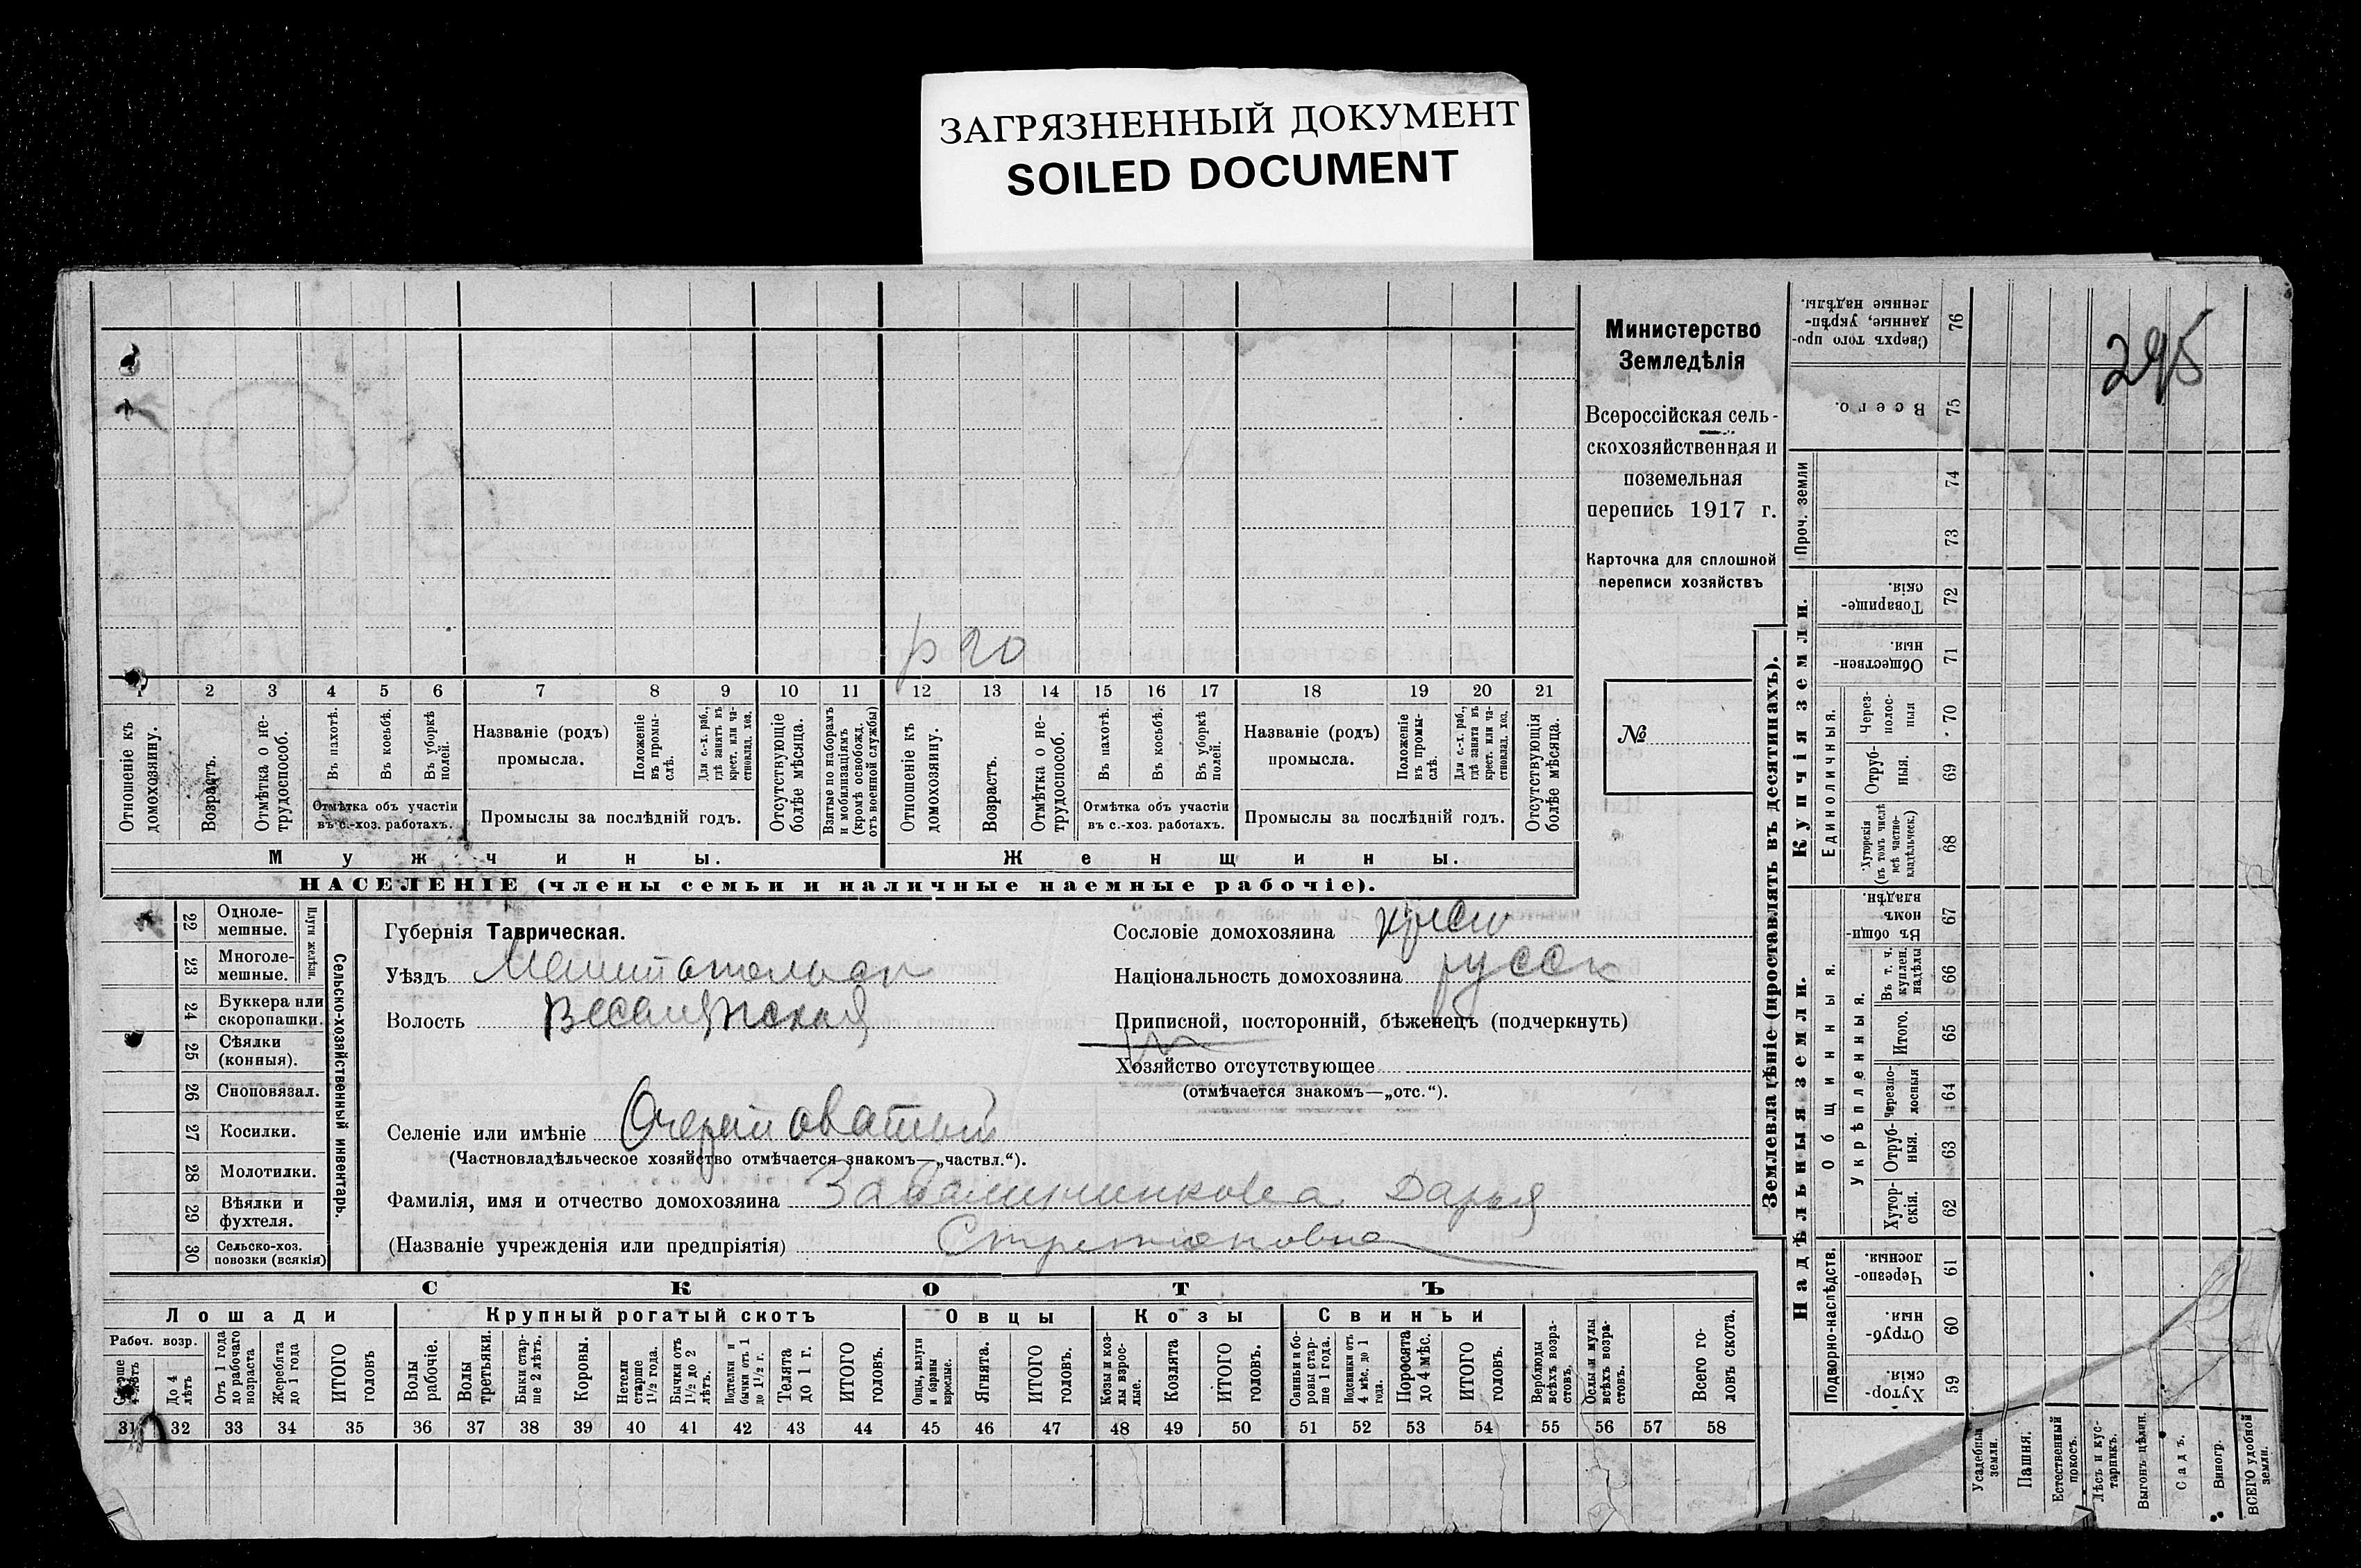 ЗАГРЯЗНЕННЫЙ ДОКУМЕНТ
SOILED DOCUMENT
295
Министерство
Земледѣлія
Всероссійская сель-
скохозяйственная и
поземельная
перепись 1917 г.
Карточка для сплошной
переписи хозяйствъ
№
р 20
1 2 3 4 5 6 7 8 9 10 11 12 13 14 15 16 17 18 19 20 21
Отношеніе къ домохозяину.
Возрастъ.
Отмѣтка о не-трудоспособ.
Въ пахотѣ.
Въ косьбѣ.
Въ уборкѣ полей.
Отмѣтка объ участіи
въ с.-хоз. работахъ.
Названіе (родъ)
промысла.
Положеніе въ промы-слѣ.
Для с.-х. раб., гдѣ занятъ въ крест. или ча-стновлад. хоз.
Промыслы за послѣдній годъ.
Отсутствующіе болѣе мѣсяца.
Взятые по наборамъ и мобилизаціямъ (кромѣ освобожд. отъ военной службы)
Отношеніе къ домохозяину.
Возрастъ.
Отмѣтка о не-трудоспособ.
Въ пахотѣ.
Въ косьбѣ.
Въ уборкѣ полей.
Отмѣтка объ участіи
въ с.-хоз. работахъ.
Названіе (родъ)
промысла.
Положеніе въ промы-слѣ.
Для с.-х. раб., гдѣ занята въ крест. или ча-стновлад. хоз.
Промыслы за послѣдній годъ.
Отсутствующія болѣе мѣсяца.
Мужчины.
Женщины.
НАСЕЛЕНІЕ (члены семьи и наличные наемные рабочіе).
22 Одноле-мешные.
23 Многоле-мешные.
Плуги желѣзн.
24 Буккера или скоропашки.
25 Сѣялки (конныя).
26 Сноповязал.
27 Косилки.
28 Молотилки.
29 Вѣялки и фухтеля.
30 Сельско-хоз. повозки (всякія)
Сельско-хозяйственный инвентарь.
Губернія Таврическая.
Уѣздъ
Волость
Селеніе или имѣніе
(Частновладѣльческое хозяйство отмѣчается знакомъ—„частвл.“).
Фамилія, имя и отчество домохозяина Дарья
(Названіе учрежденія или предпріятія)
Сословіе домохозяина
Національность домохозяина русск
Приписной, посторонній, бѣженецъ (подчеркнуть)
Хозяйство отсутствующее
(отмѣчается знакомъ—„отс.“).
СКОТЪ
Лошади
Крупный рогатый скотъ
Овцы
Козы
Свиньи
Рабоч. возр.
Старше 4 лѣтъ
До 4 лѣтъ
Отъ 1 года до рабочаго возраста
Жеребята до 1 года
ИТОГО головъ
Волы рабочіе.
Волы третьяки.
Быки стар-ше 2 лѣтъ.
Коровы.
Нетели старше 1½ года.
Бычки отъ 1½ до 2 лѣтъ.
Подтелки и бычки отъ 1 до 1½ г.
Телята до 1 г.
ИТОГО головъ.
Овцы, валухи и бараны взрослые.
Ягнята.
ИТОГО головъ.
Козы и коз-лы взрос-лые.
Козлята
ИТОГО головъ.
Свиньи и бо-ровы стар-ше 1 года.
Подсвинки отъ 4 мѣс. до 1 года.
Поросята до 4 мѣс.
ИТОГО головъ.
Верблюды всѣхъ возра-стовъ.
Ослы и мулы всѣхъ возра-стовъ.
Всего го-ловъ скота.
31 32 33 34 35 36 37 38 39 40 41 42 43 44 45 46 47 48 49 50 51 52 53 54 55 56 57 58
Землевладѣніе (проставлять въ десятинахъ).
Надѣльныя земли.
Купчія земли.
Проч. земли
Подворно-наслѣдств.
Общинныя.
Укрѣпленныя.
Единоличныя.
Хутор-скія. 59
Отруб-ныя. 60
Черезпо-лосныя. 61
Хутор-скія. 62
Отруб-ныя. 63
Черезпо-лосныя 64
Итого. 65
Въ т. ч. куплен. надѣлы 66
Въ общи-номъ владѣн. 67
Хуторскія (въ томъ числѣ всѣ частно-владѣльческ.) 68
Отруб-ныя. 69
Через-полос-ныя 70
Обществен-ныя. 71
Товарище-скія. 72
73
74
Всего. 75
Сверхъ того про-данные, укрѣп-ленные надѣлы. 76
Усадебныя земли.
Пашня.
Естественный покосъ.
Лѣсъ и кус-тарникъ.
Выгонъ цѣлин.
Садъ.
Виногр.
ВСЕГО удобной земли.